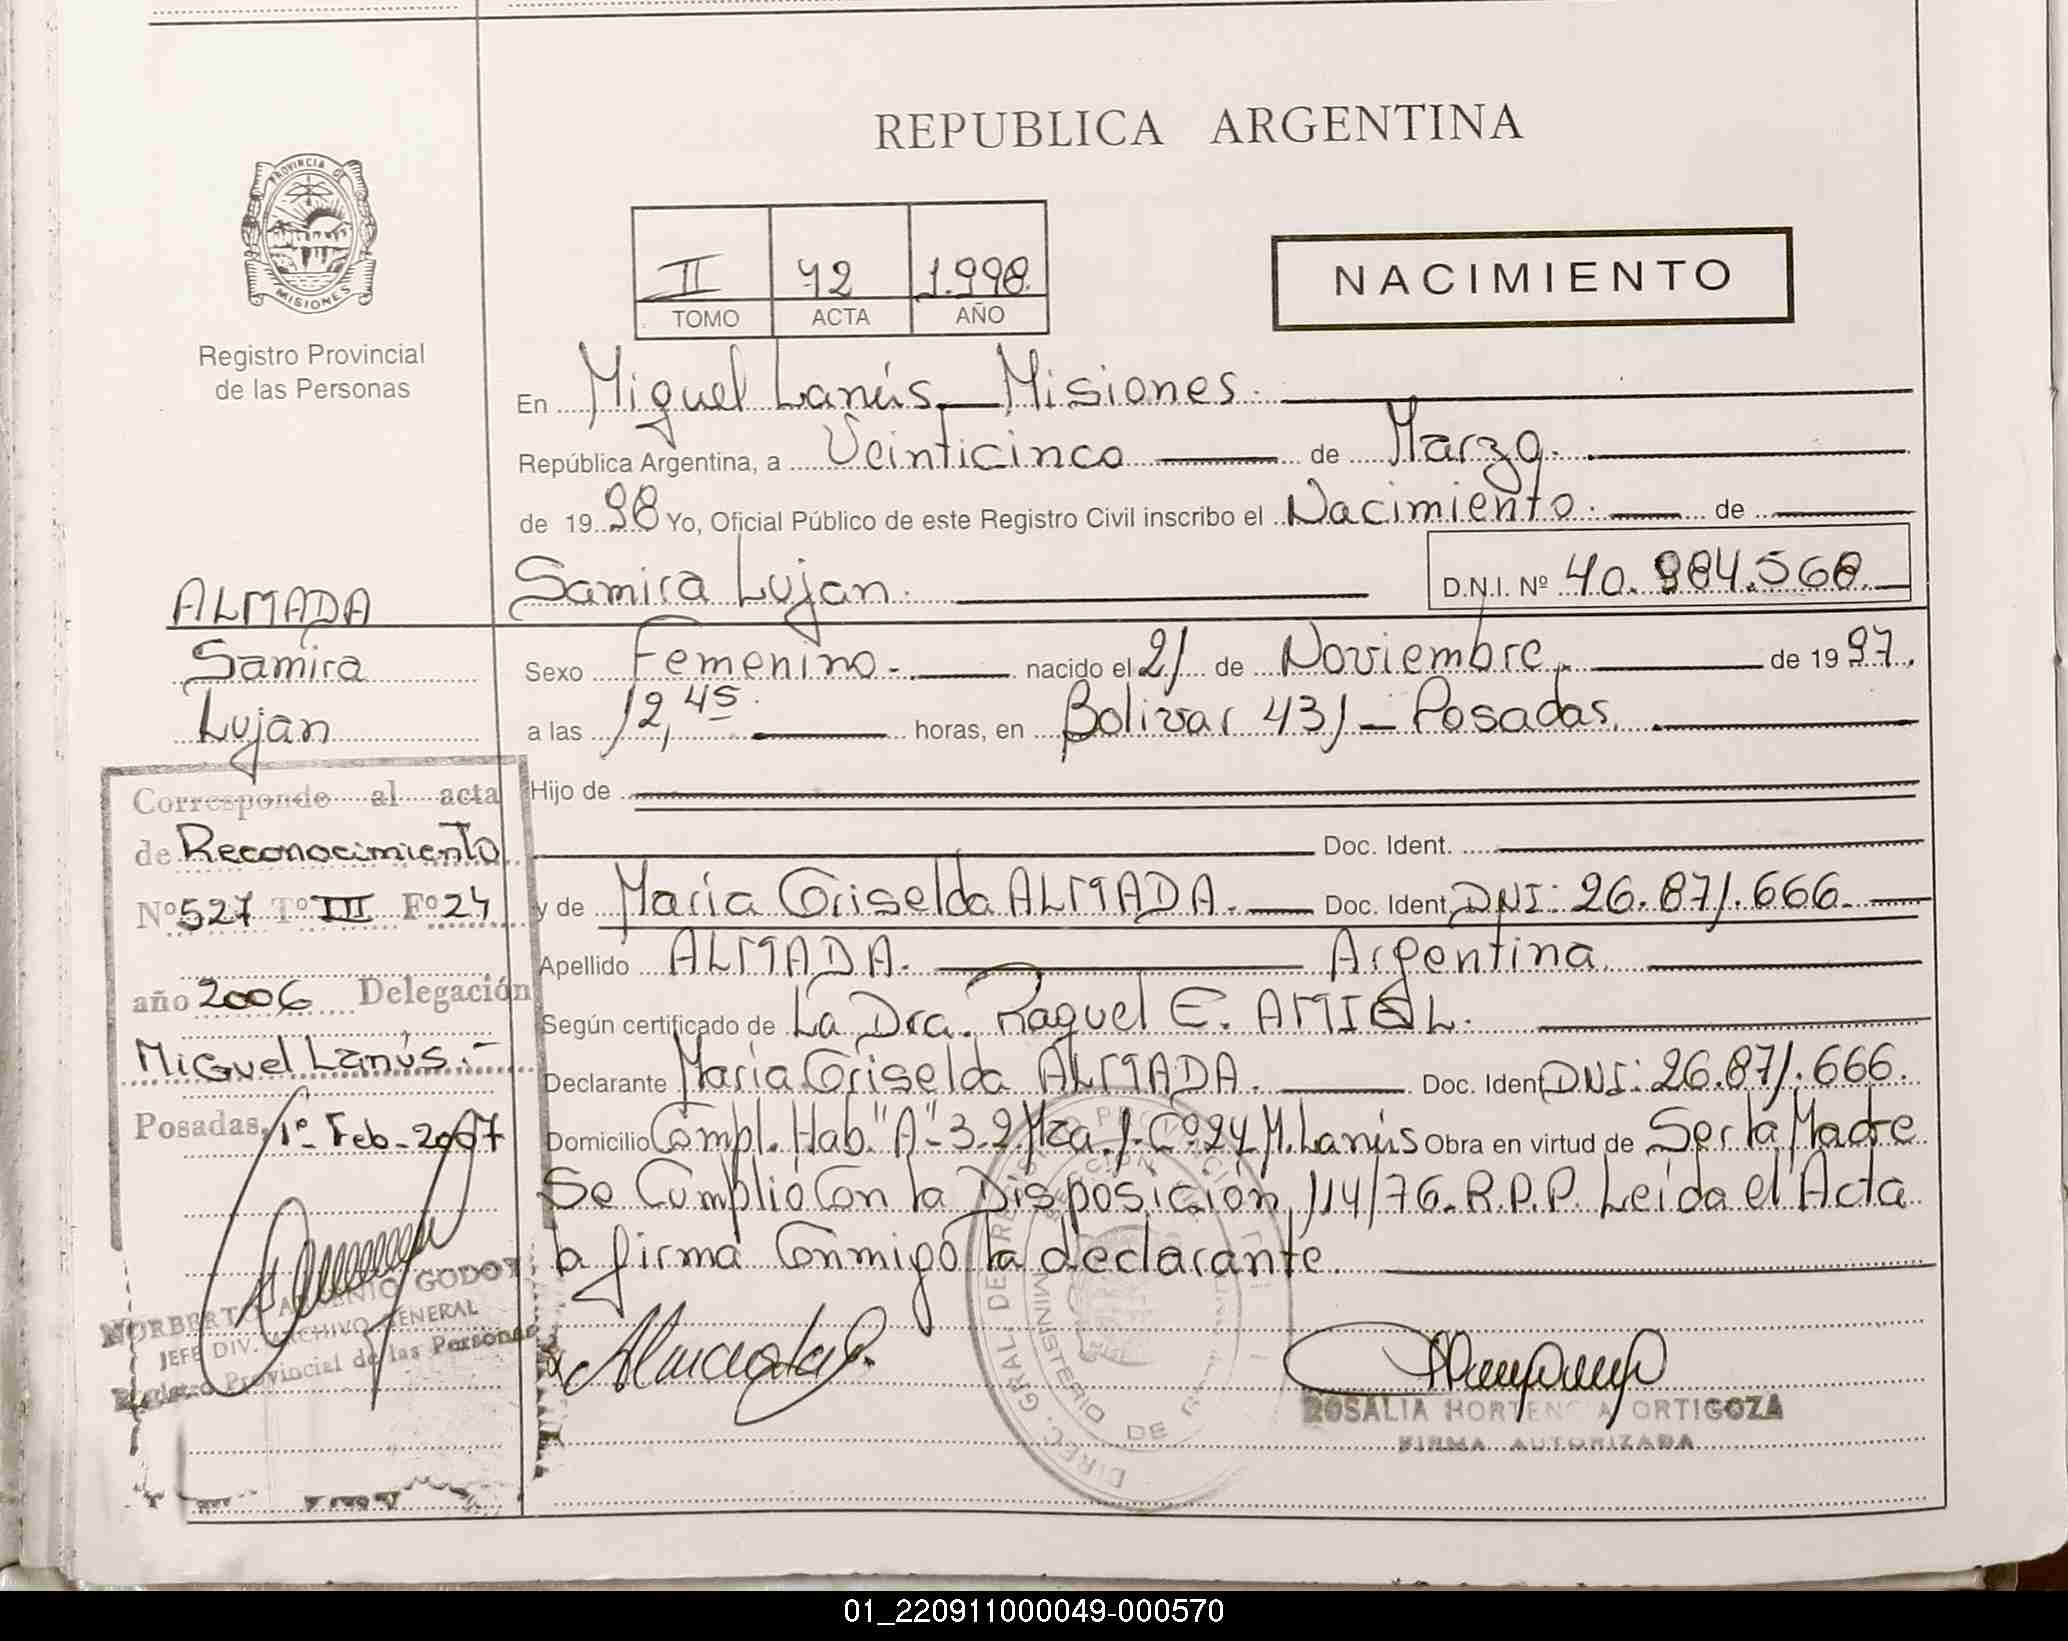 REPUBLICA ARGENTINA
PROVINCIA DE
MISIONES
Registro Provincial
de las Personas
II 42 1.998.
TOMO ACTA AÑO
NACIMIENTO
En Miguel Lanús - Misiones.
República Argentina, a Veinticinco de Marzo.
de 1998 Yo, Oficial Público de este Registro Civil inscribo el Nacimiento. de
Samira Lujan. D.N.I. Nº 40.984.568.
ALMADA
Samira
Lujan
Sexo Femenino. nacido el 21 de Noviembre. de 1997.
a las 12,45. horas, en Bolivar 431 - Posadas.
Hijo de
Doc. Ident.
y de María Griselda ALMADA. Doc. Ident DNI: 26.871.666.
Apellido ALMADA. Argentina.
Según certificado de La Dra. Raquel E. AMIEL.
Declarante María Griselda ALMADA. Doc. Ident DNI: 26.871.666.
Domicilio Compl. Hab. "A"-3-2 Mza. 1-Cº24 M. Lanús Obra en virtud de Ser la Madre
Se Cumplió Con la Disposición 114/76-R.P.P. Leída el Acta
la firma Conmigo la declarante.
Corresponde al acta
de Reconocimiento
Nº 527 Tº III Fº 24
año 2006 Delegación
Miguel Lanús.-
Posadas, 1º- Feb-2007
NORBERTO ARSENIO GODOY
JEFE DIV. ARCHIVO GENERAL
Registro Provincial de las Personas
ROSALIA HORTENCIA ORTIGOZA
FIRMA AUTORIZADA
DIREC. GRAL DE REGISTRO PROVINCIAL
MINISTERIO DE
01_220911000049-000570